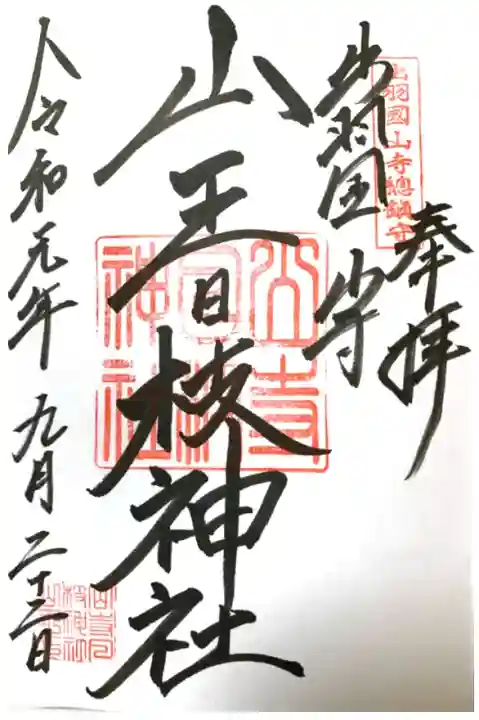 奉拝
出羽國山寺總鎮守
出羽国 山寺
山王日枝神社
山寺日枝神社
令和元年 九月二十二日